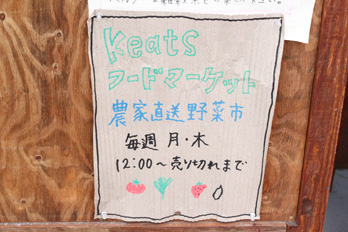 Keats
フードマーケット
農家直送野菜市
毎週 月・木
12:00〜売り切れまで